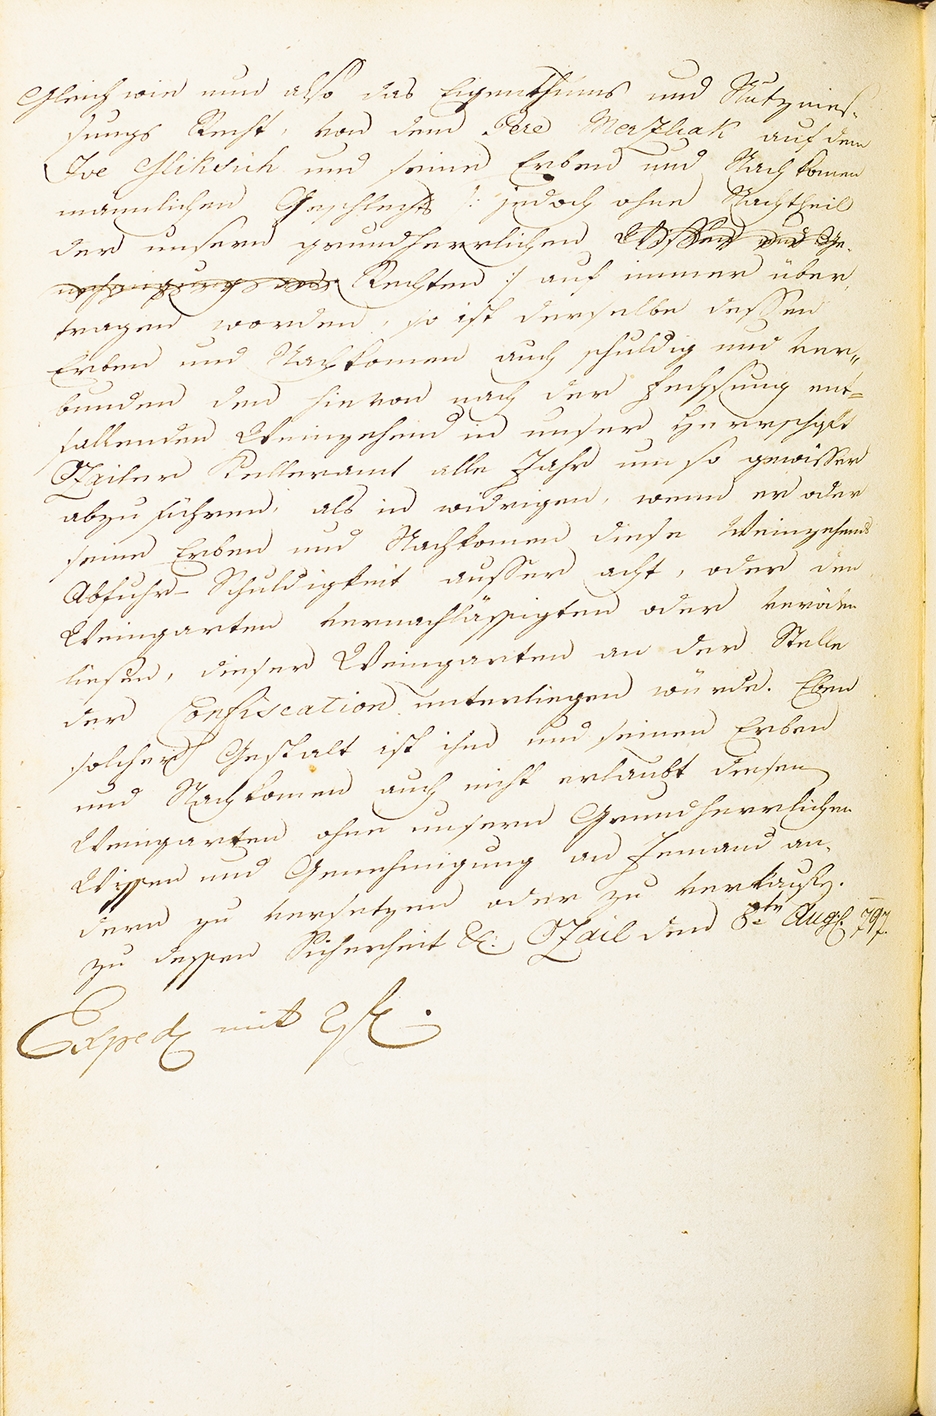 Gleich wie nun also das Eigenthums und Nutznies-
sungs Recht, von dem Pere Merzliak auf dem
Ive Gliksich und seine Erben und Nachkomen
mannlichen Geschlechts /: jedoch ohne Nachtheil
der unsern grundherrlichen Wissen und Ge-
nehmigungs und Rechten :/ auf immer über-
tragen worden, so ist derselbe dessen
Erben und Nachkomen auch schuldig und ver-
bunden den hievon nach der Fechsung ent-
fallenden Weinzehend in unser Herrschaft
Ozailer Kelleramt alle Jahr um so gewisser
abzuführen, als in widrigen, wenn er oder
seine Erben und Nachkomen diese Weinzehend
Abfuhr-Schuldigkeit ausser acht, oder den
Weingarten vernachlässigten oder veröden
liesen, dieser Weingarten an der Stelle
der Confiscation unterliegen würde. Eben
solcher Gestalt ist ihm und seinen Erben
und Nachkomen auch nicht erlaubt diesen
Weingarten ohne unsern Grundherrlichen
Wissen und Genehmigung an Jemand an-
dern zu versetzen oder zu verkaufen.
zu dessen Sicherheit &c: Ozail den 8te Aug: 797
Exped mit